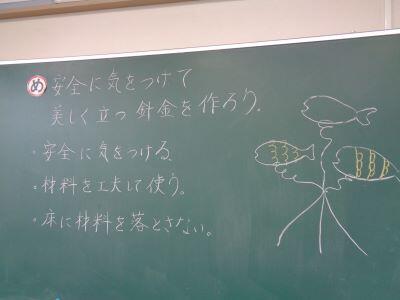 め 安全に気をつけて
美しく立つ針金を作ろう。
・安全に気をつける
・材料を工夫して使う。
・床に材料を落とさない。